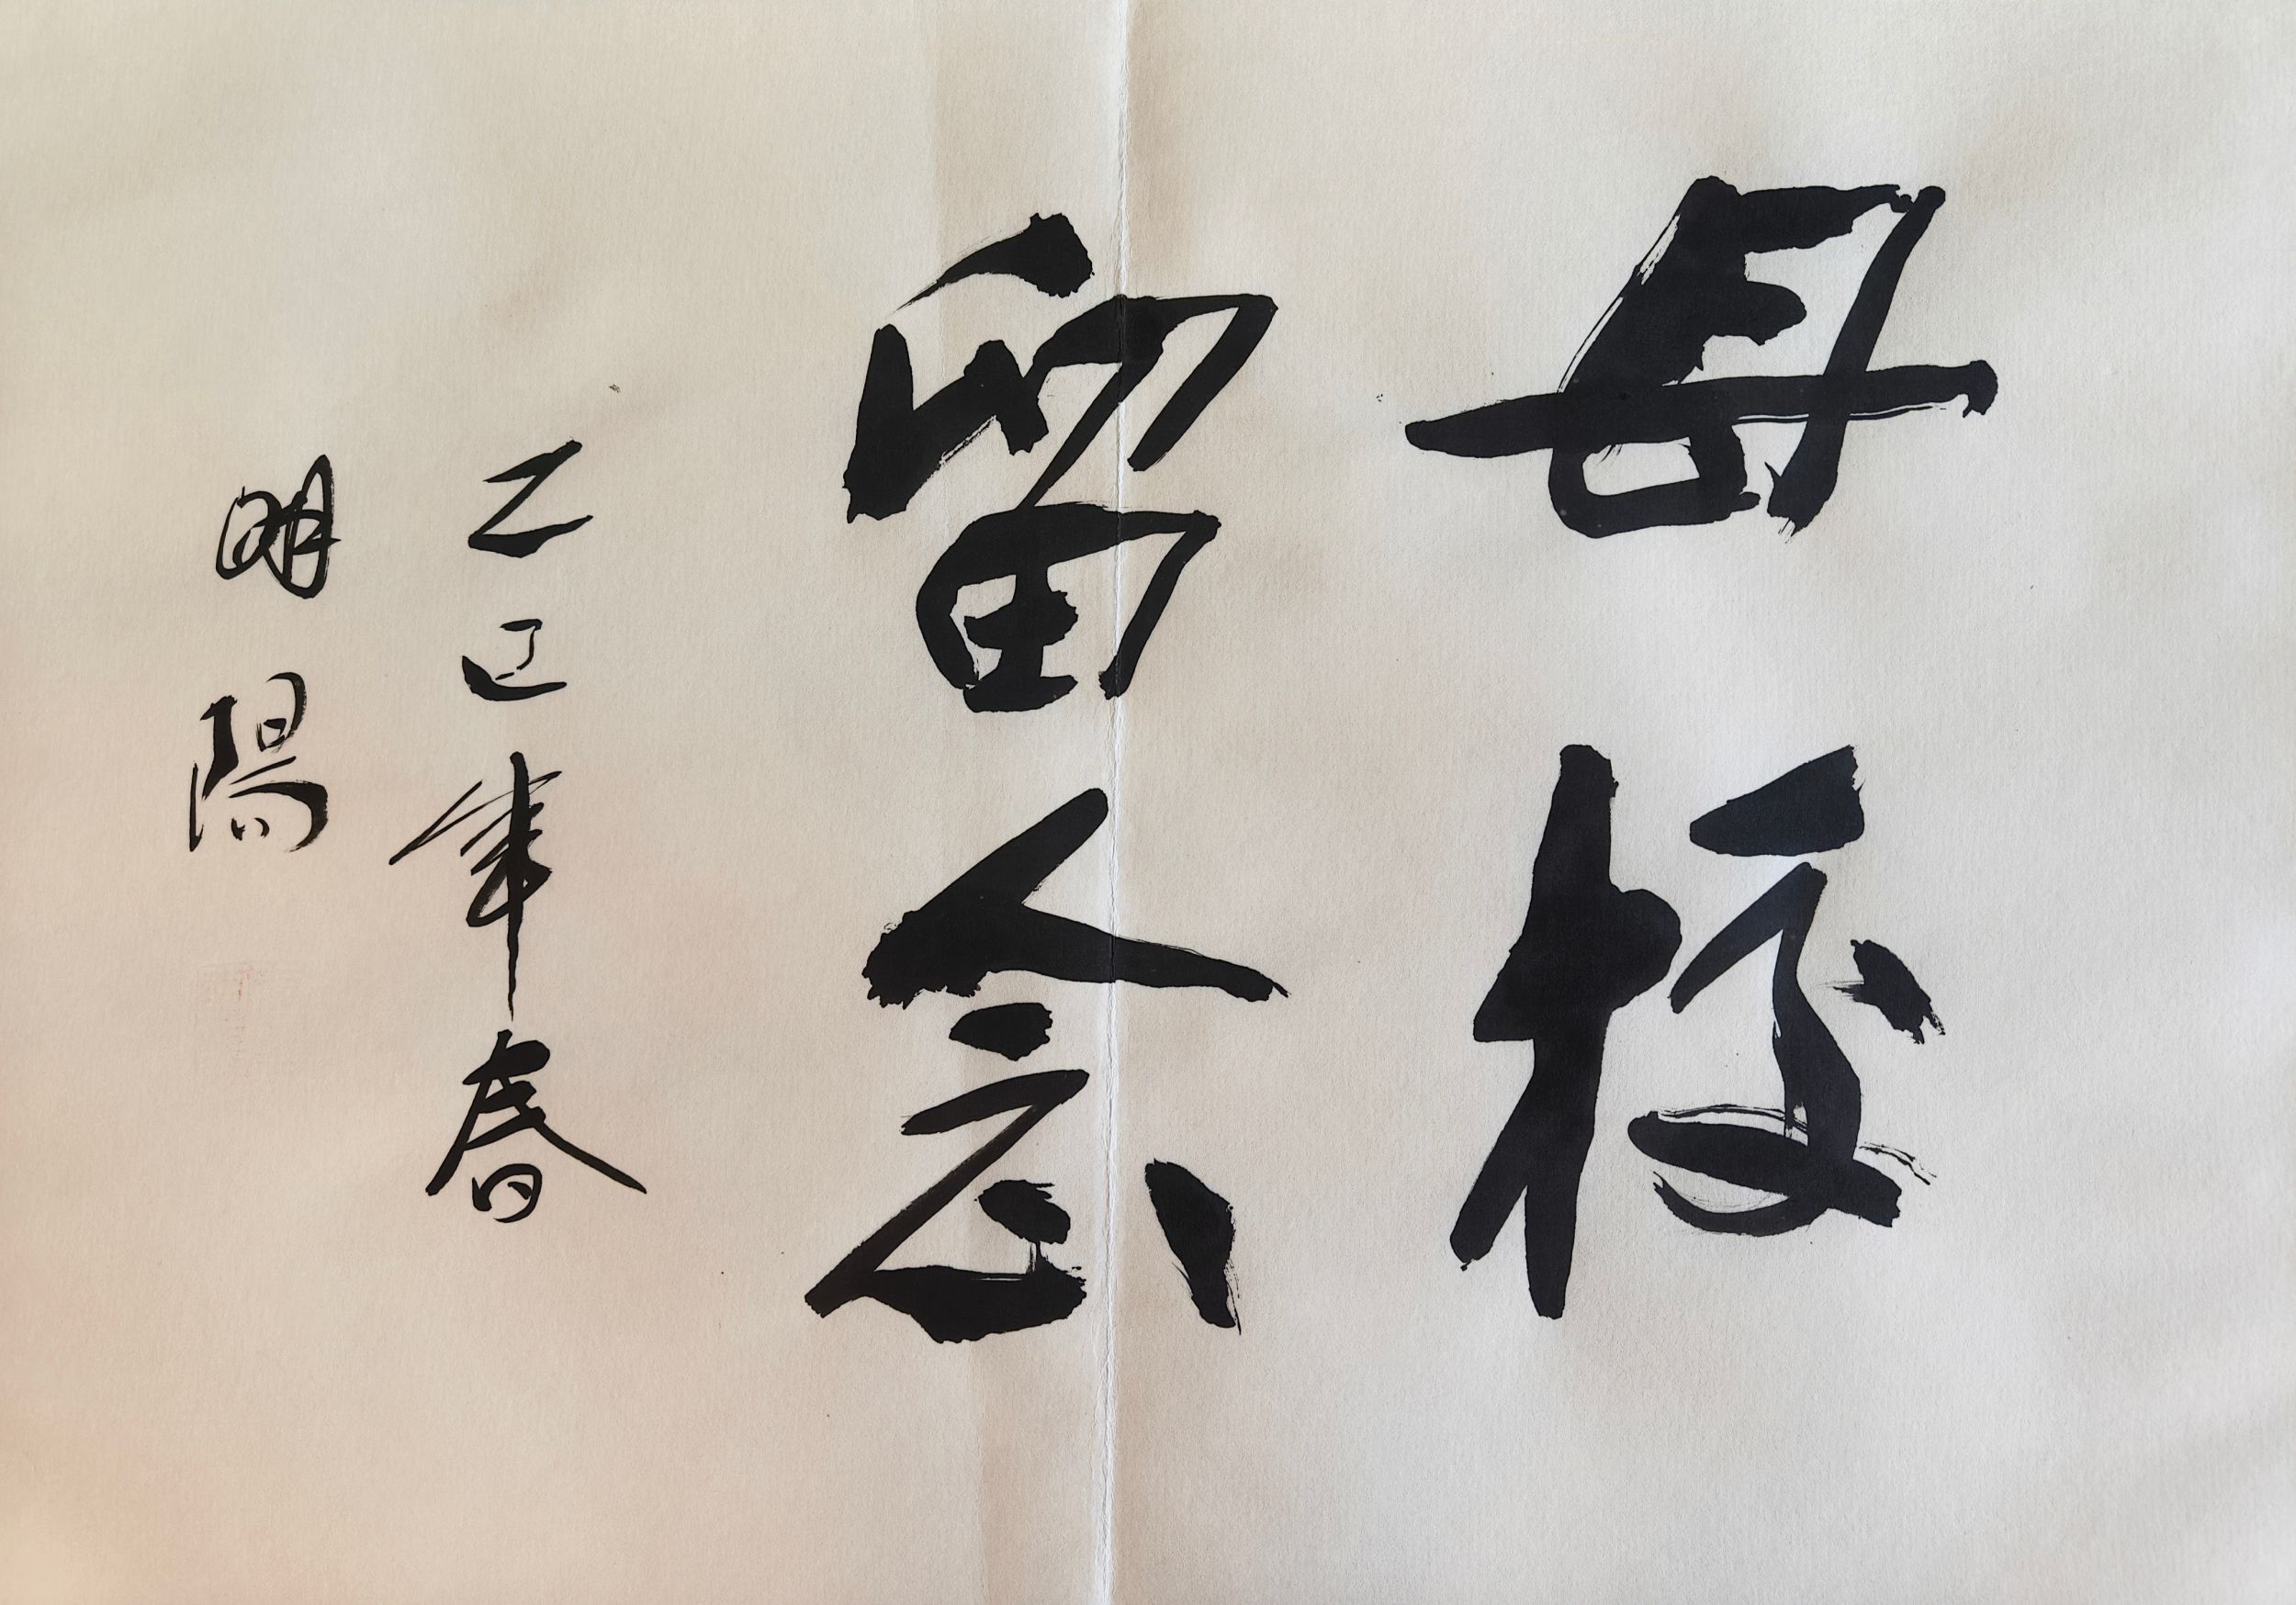 母校
留念
乙巳年春
明陽